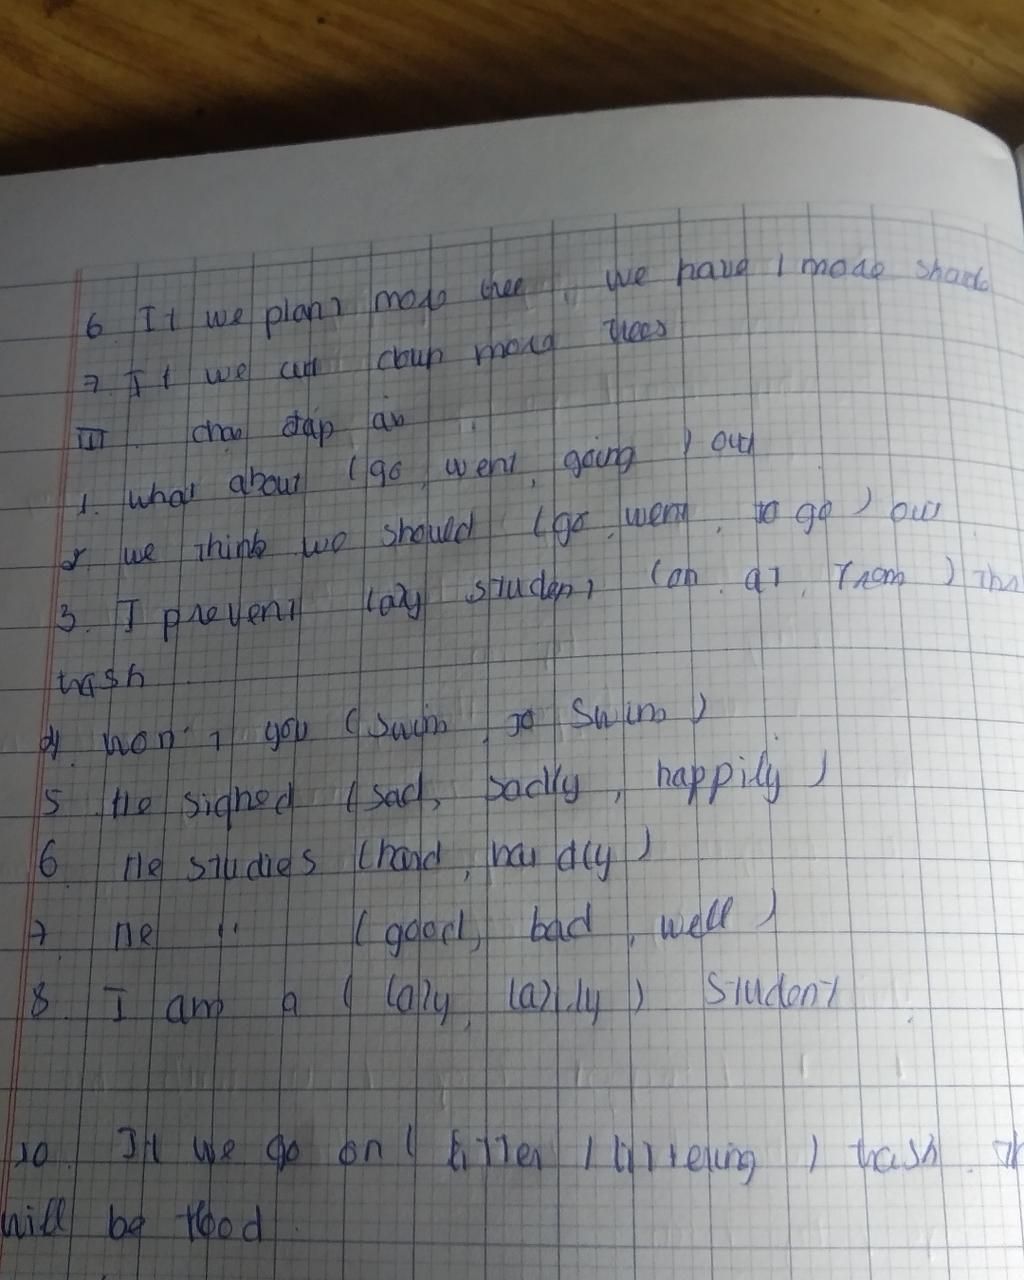 6. If we plant more tree, we have / more shade
7. If we cut down more trees
III. chọn đáp án
1. what about (go, went, going) out
2. we think we should (go, went, to go) out
3. I prevent lazy student (on, at, from)
trash
4. won't you (swim, to swim)
5. He sighed (sad, sadly, happily)
6. He studies (hard, hardly)
7. He " (good, bad, well)
8. I am a (lazy, lazily) student
10. If we go on (litter / littering) trash.
will be flood.